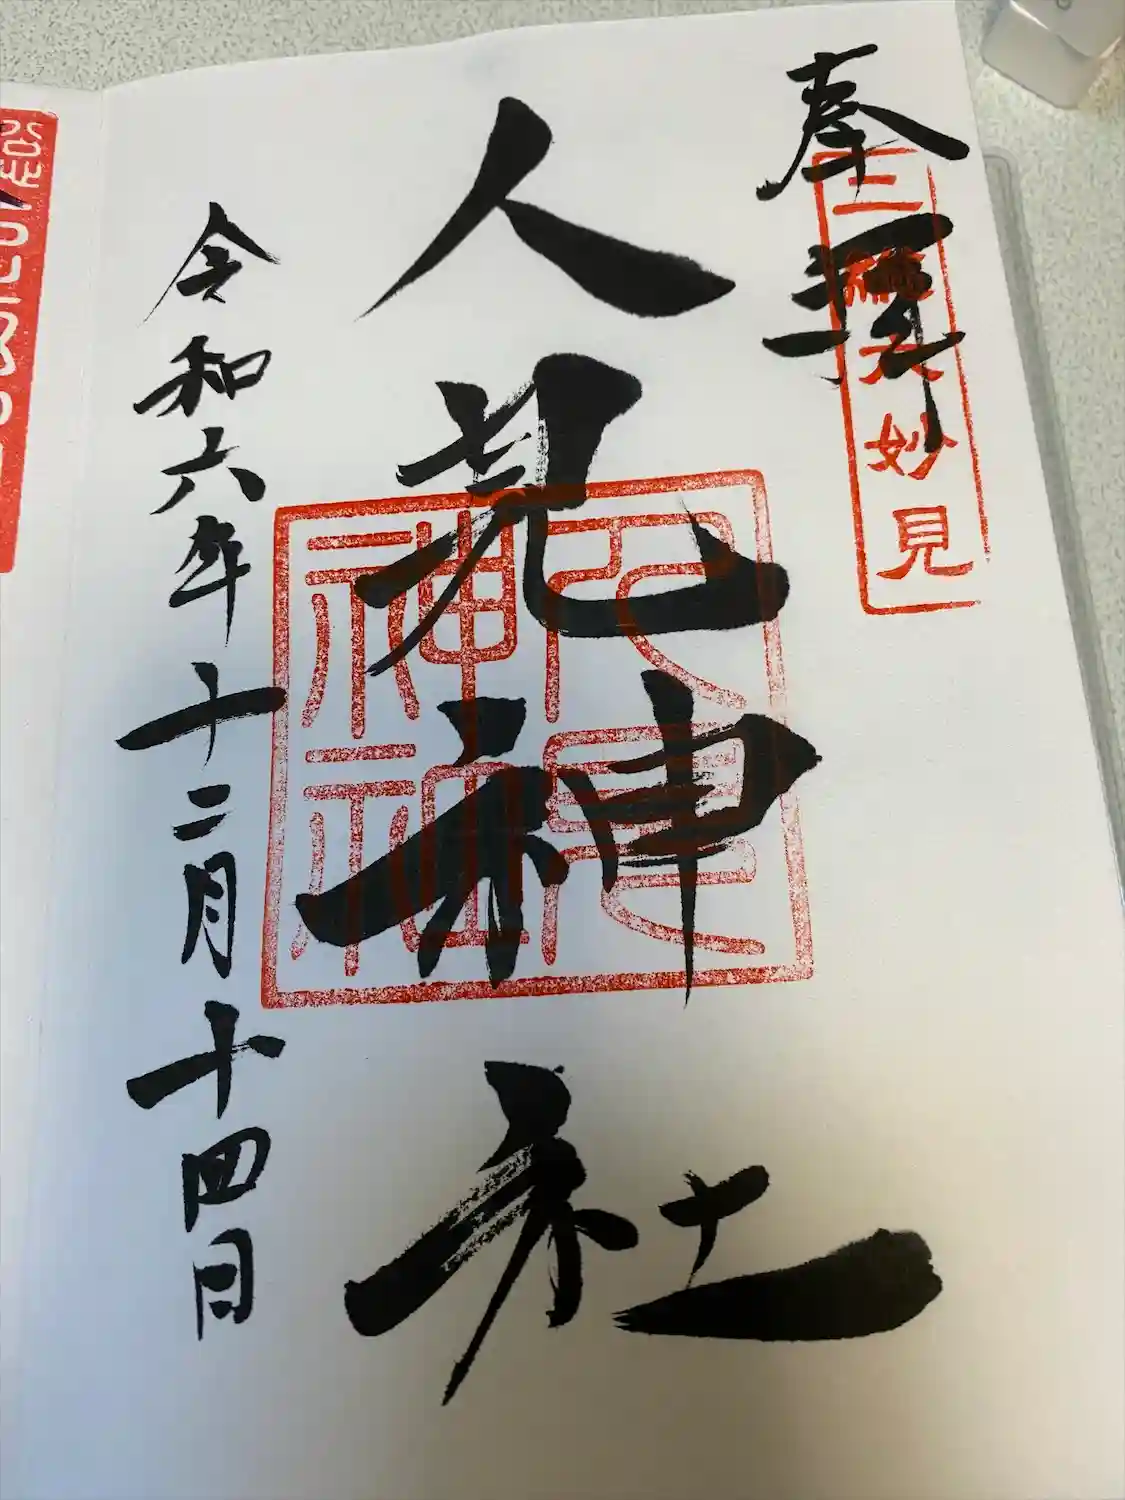 奉拝
三
大妙見
人見神社
人見
神社
令和六年十二月十四日